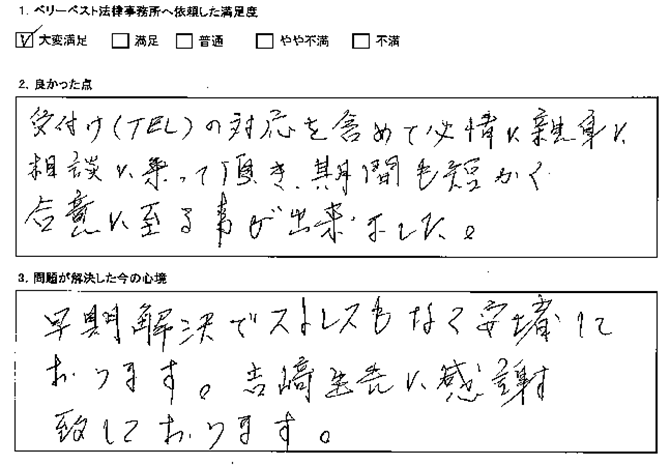 1. ベリーベスト法律事務所へ依頼した満足度
☑ 大変満足 □ 満足 □ 普通 □ やや不満 □ 不満
2. 良かった点
受付け(TEL)の対応を含めて 必情に親身に
相談に乗って頂き、期間も短かく
合意に至る事が出来ました。
3. 問題が解決した今の心境
早期解決でストレスもなく安堵して
おります。吉﨑先生に感謝
致しております。